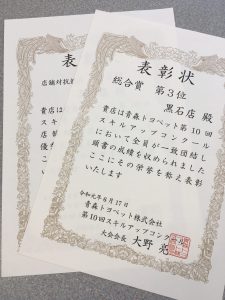 表彰状
総合賞 第３位
黒石店 殿
貴店は青森トヨペット第１０回
スキルアップコンクール
において全員が一致団結し
頭書の成績を収められました
ここにその栄誉を称え表彰
いたします
令和元年８月１７日
青森トヨペット株式会社
第１０回スキルアップコンク
大会会長 大野 亮
表
店舗対抗
貴店は
スキ
店
優
こ